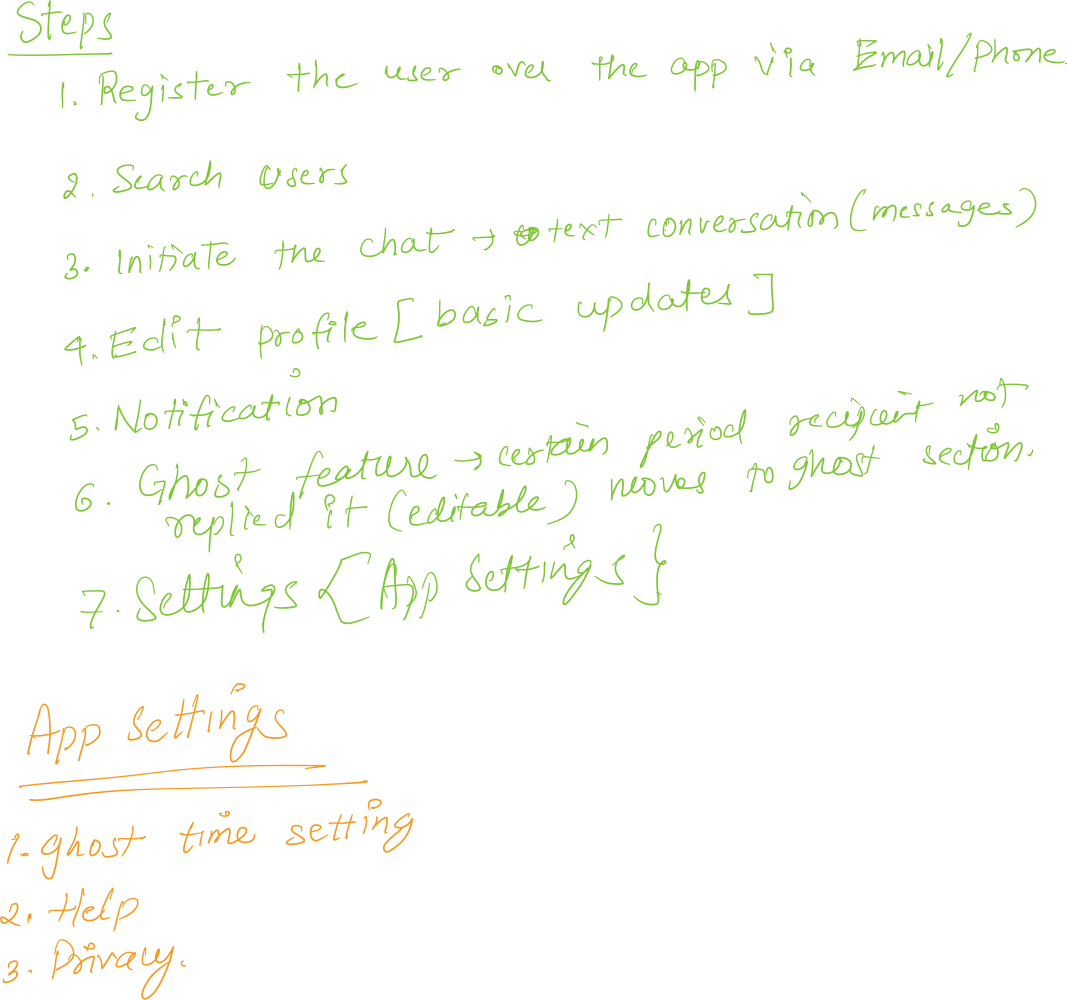 Steps
1. Register the user over the app via Email/Phone.
2. Search Users
3. Initiate the chat → text conversation (messages)
4. Edit profile [basic updates]
5. Notification
6. Ghost feature → certain period recipient not
replied it (editable) moves to ghost section.
7. Settings {App Settings}
App Settings
1. Ghost time setting
2. Help
3. Privacy.